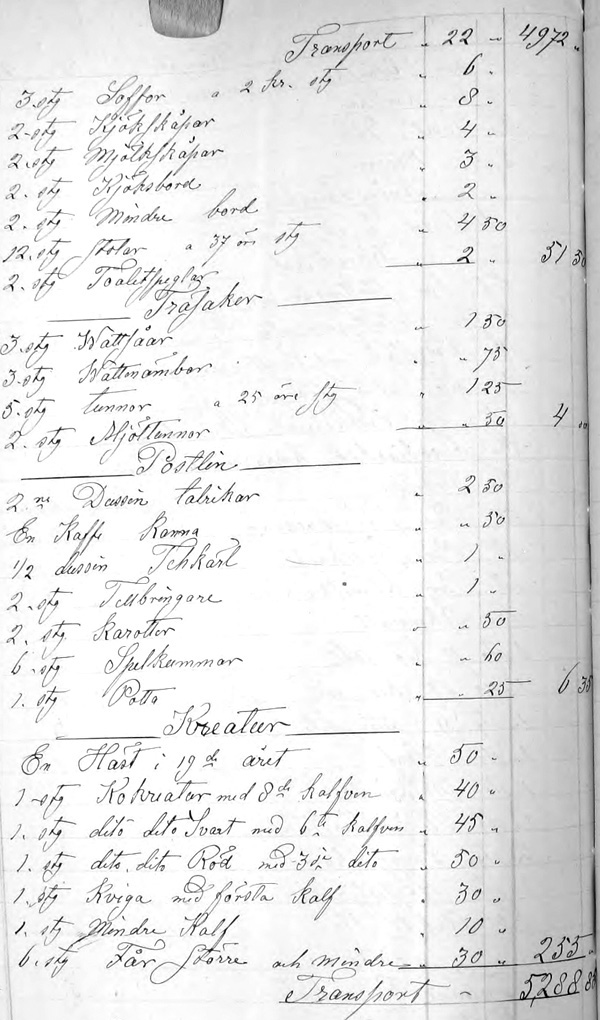 Transport " 22 " 4972 "
3. sty Soffor a 2 kr. sty " 6 "
2. sty Kjökskåpar " 8 "
2. sty Mjölkskåpar " 4 "
2. sty Kjöksbord " 3 "
2. sty Mindre bord " 2 "
12. sty Stolar a 37 öre sty " 4 50
2. sty Toaletspeglar " 2 " 51 50
Träsaker
3. sty Wattsåar " 1 50
3. sty Wattenämbar " " 75
5. sty tunnor a 25 öre sty " 1 25
2. sty Mjöltunnor " " 50 4 "
Postlin
2 ne Dussin talrikar " 2 50
En Kaffe Kanna " " 50
1/2 dussin Tehkärl " 1 "
2. sty Tillbringare " 1 "
2. sty Karotter " " 50
6. sty Spelkummar " " 60
1. sty Potta " " 25 6 35
Kreatur
En Häst i 19de året " 50 "
1. sty Kokreatur med 8de kalfven " 40 "
1. sty dito dito Svart med 6te kalfven " 45 "
1. sty dito. dito Röd med 3de dito " 50 "
1. sty Kviga med första kalf " 30 "
1. sty Mindre Kalf " 10 "
6. sty Får Större och mindre " 30 " 255 "
Transport " 5,288 85